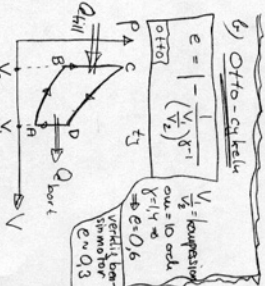 b) Otto-cykeln
e = 1 - 1/(V₁/V₂)^(γ-1)
Otto
ty
V₁/V₂ = kompression
om = 10 och
γ = 1,4 ⇒
⇒ e = 0,6
verklig ben
sinmotor
e ≈ 0,3
P
Qtill
C
B
D
A
Qbort
V
V
V